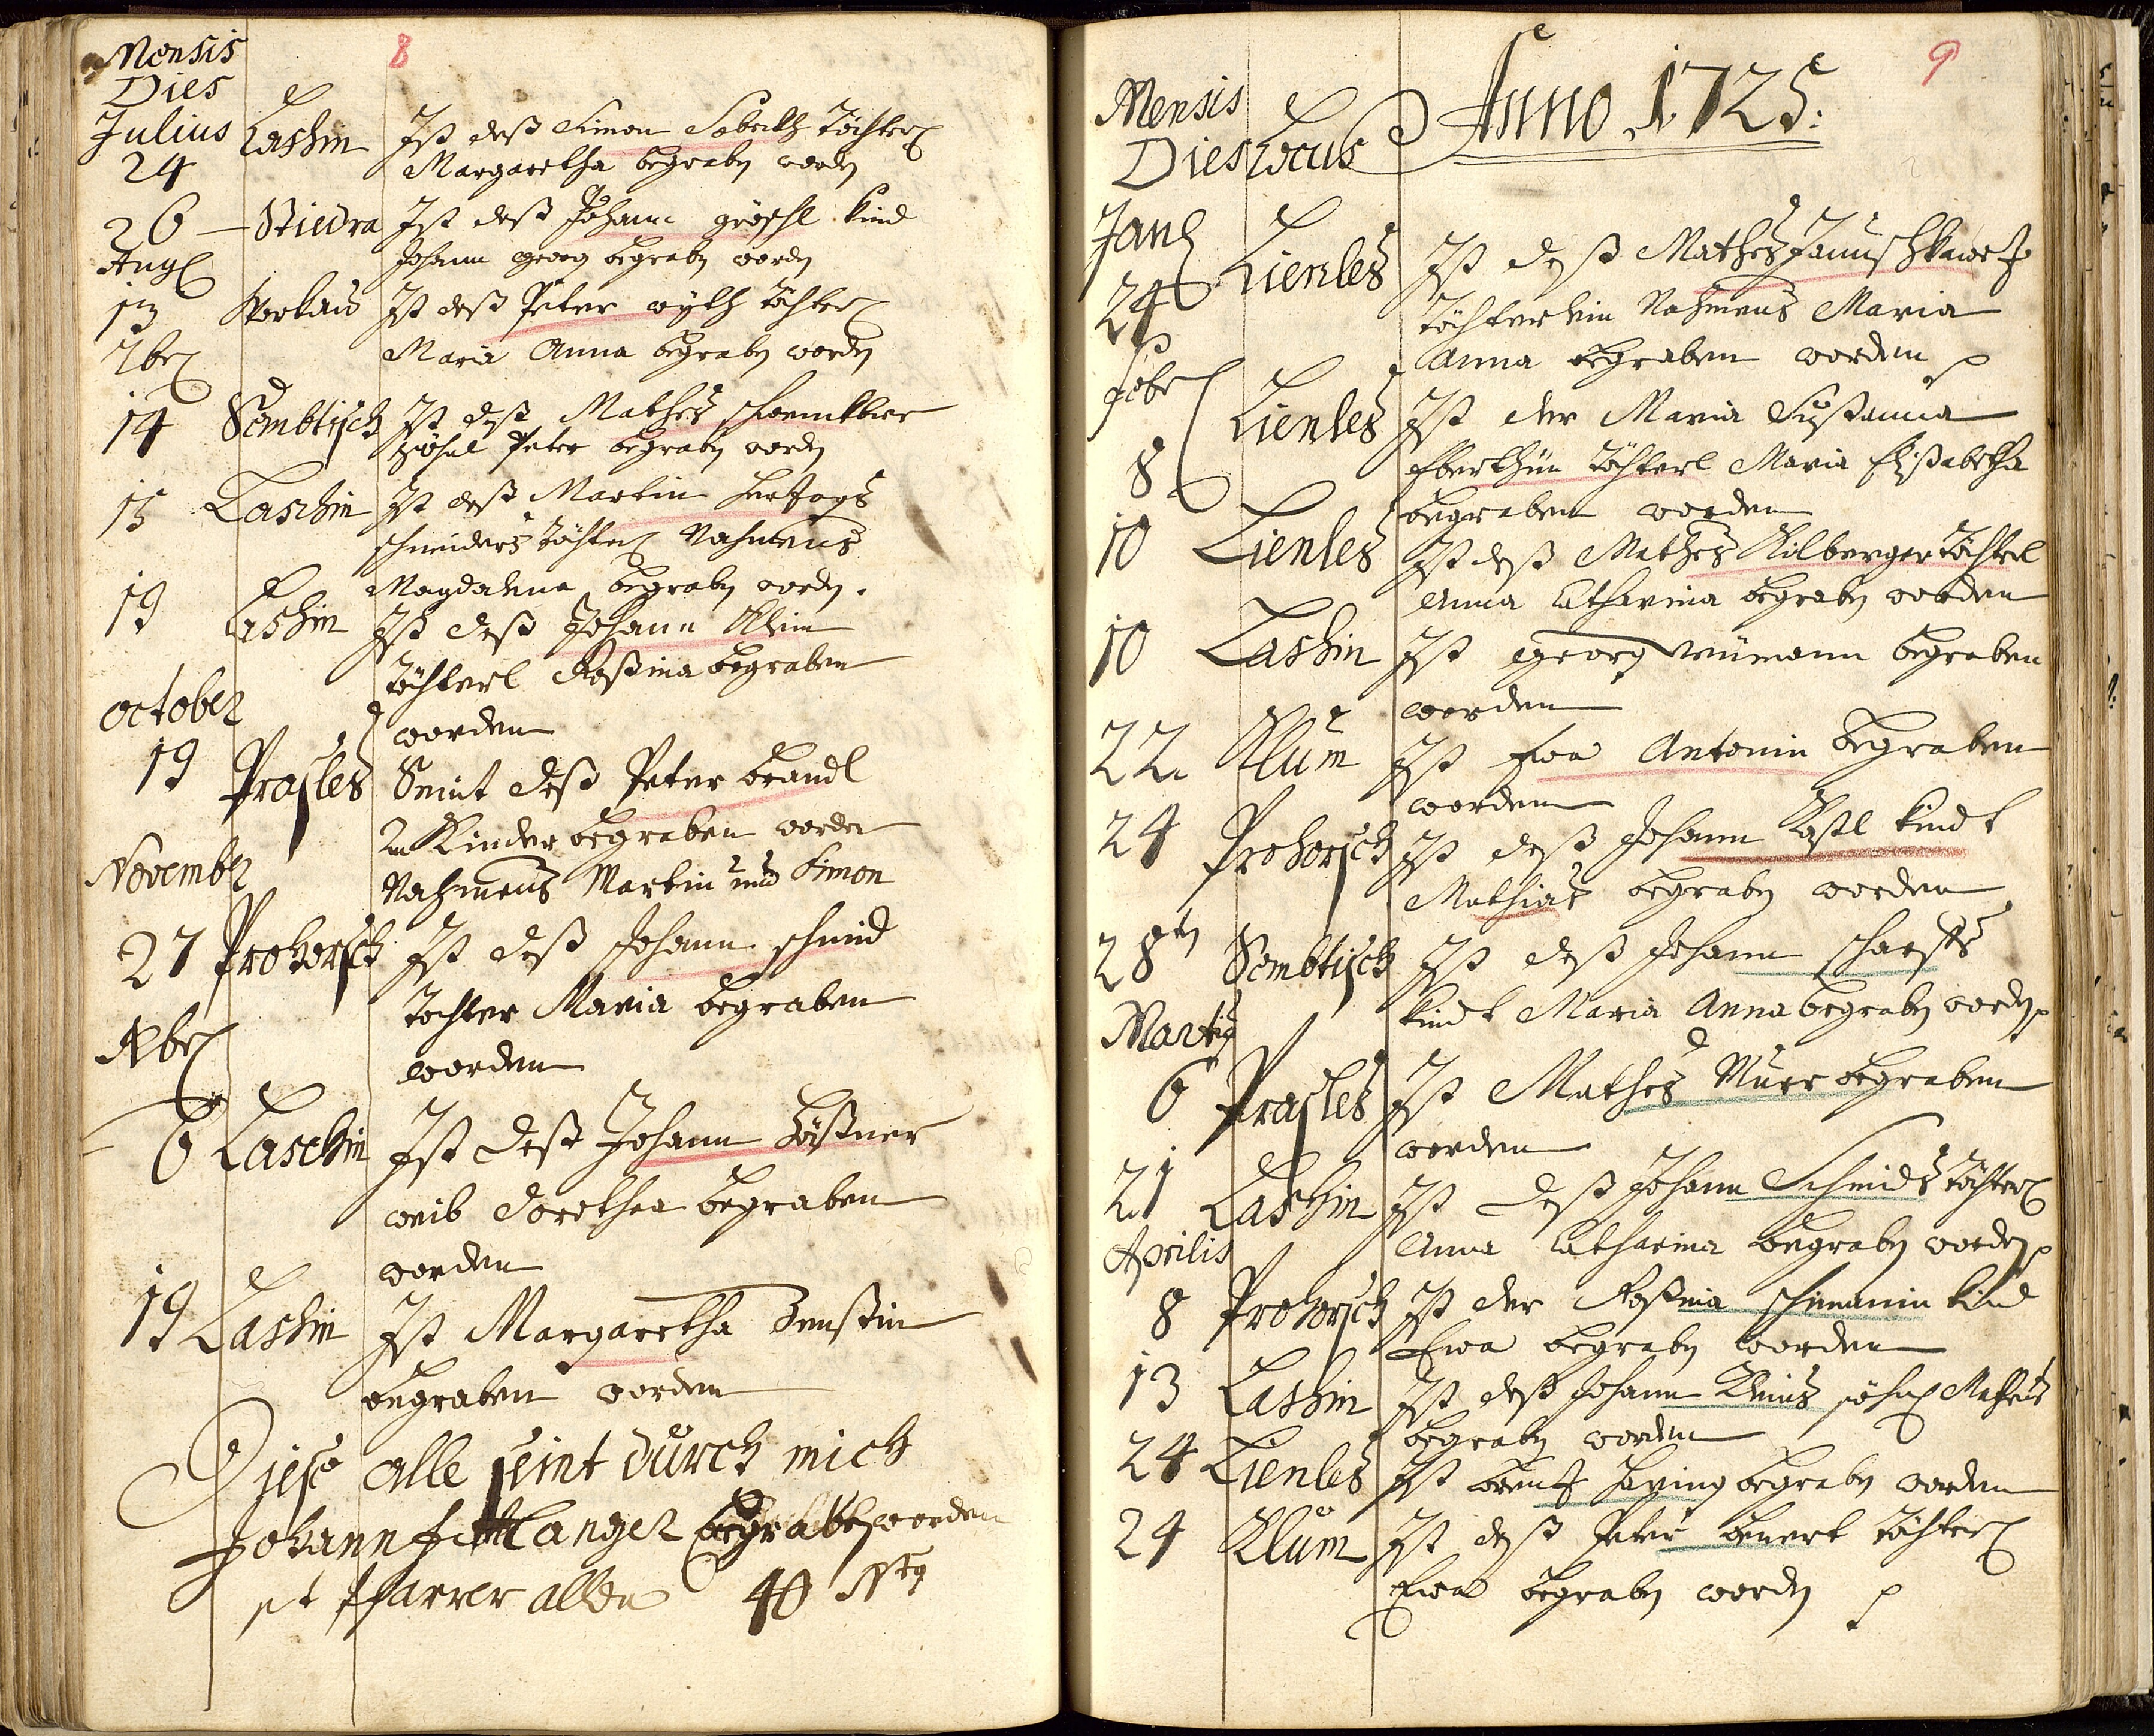 8
Mensis
Dies
Julius Laskin Ist deß Simon Töchterl
24 Margaretha begraben worden
26 – Stiedra Ist deß Johann gröschl kind
Augl Johann georg begraben worden
13 Ist deß Peter Töchterl
7brl Maria Anna begraben worden
14 Sembtisch Ist deß Mathes
söhnl Peter begraben worden
15 Laschin Ist deß Martin hertzogs
schneiders Töchterl Nahmens
Magdalena begraben worden.
19 Laskin Ist deß Johann Klein
Töchterl Rosina begraben
october worden
19 Prasles Seint deß Peter brandl
2 Kinder begraben worden
Novembr Nahmens Martin und Simon
27 Prohorsch Ist deß Johann schmid
Tochter Maria begraben
Xbrl worden
6 Laschin Ist deß Johann
weib Dorothea begraben
worden
19 Laskin Ist Margaretha
begraben worden
Diese alle seint durch mich
Johann Langer begraben worden
pt Pfarrer allda 40
9
Mensis Anno 1725:
Dies Locus
Janl Lienles Ist deß Mathes
24 Töchterlein Nahmens Maria
Anna begraben worden
Febrl Lienles Ist der Maria Susanna
8 Eberthin Töchterl Maria Elisabetha
begraben worden
10 Lienles Ist deß Mathes Kilberger Töchterl
Anna Catharina begraben worden
10 Laskin Ist georg begraben
worden
22 Klum Ist Eva Antonin begraben
worden
24 Prohorsch Ist deß Johann Kastl kindt
Mathias begraben worden
28tn Sembtisch Ist deß Johann
kindt Maria Anna begraben worden
Martii
6 Prasles Ist Mathes Murr begraben
worden
21 Laskin Ist deß Johann Schmids Töchterl
Aprilis Anna Catharina begraben worden
8 Prohorsch Ist der Rosina kind
Eva begraben worden
13 Laskin Ist deß Johann Kleins söhnl Matheus
begraben worden
24 Lienles Ist begraben worden
24 Klum Ist deß Peter Töchterl
Eva begraben worden